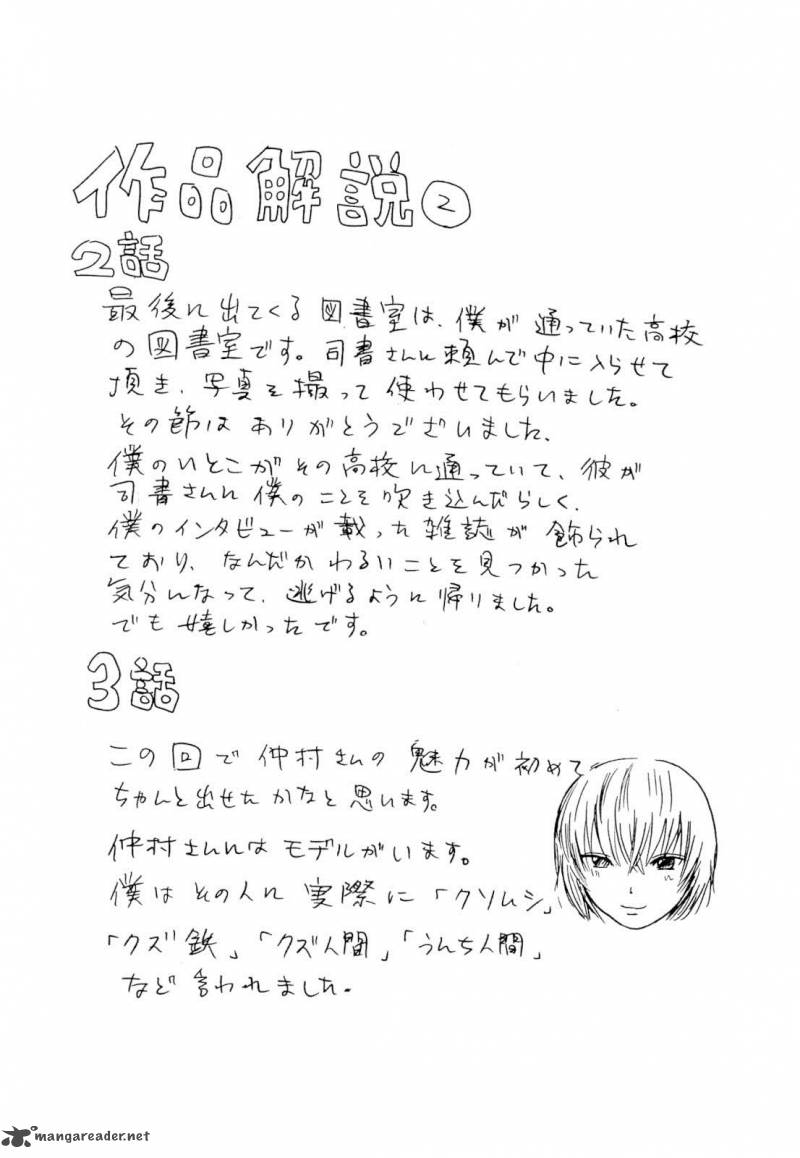 作品解説②
2話
最後に出てくる図書室は、僕が通っていた高校
の図書室です。司書さんに頼んで中に入らせて
頂き、写真を撮って使わせてもらいました。
その節はありがとうございました。
僕のいとこがその高校に通っていて、彼が
司書さんに僕のことを吹き込んだらしく、
僕のインタビューが載った雑誌が飾られ
ており、なんだかわるいことを見つかった
気分になって、逃げるように帰りました。
でも嬉しかったです。
3話
この回で仲村さんの魅力が初めて
ちゃんと出せたかなと思います。
仲村さんにはモデルがいます。
僕はその人に実際に「クソムシ」
「クズ鉄」「クズ人間」「うんち人間」
など言われました。
mangareader.net